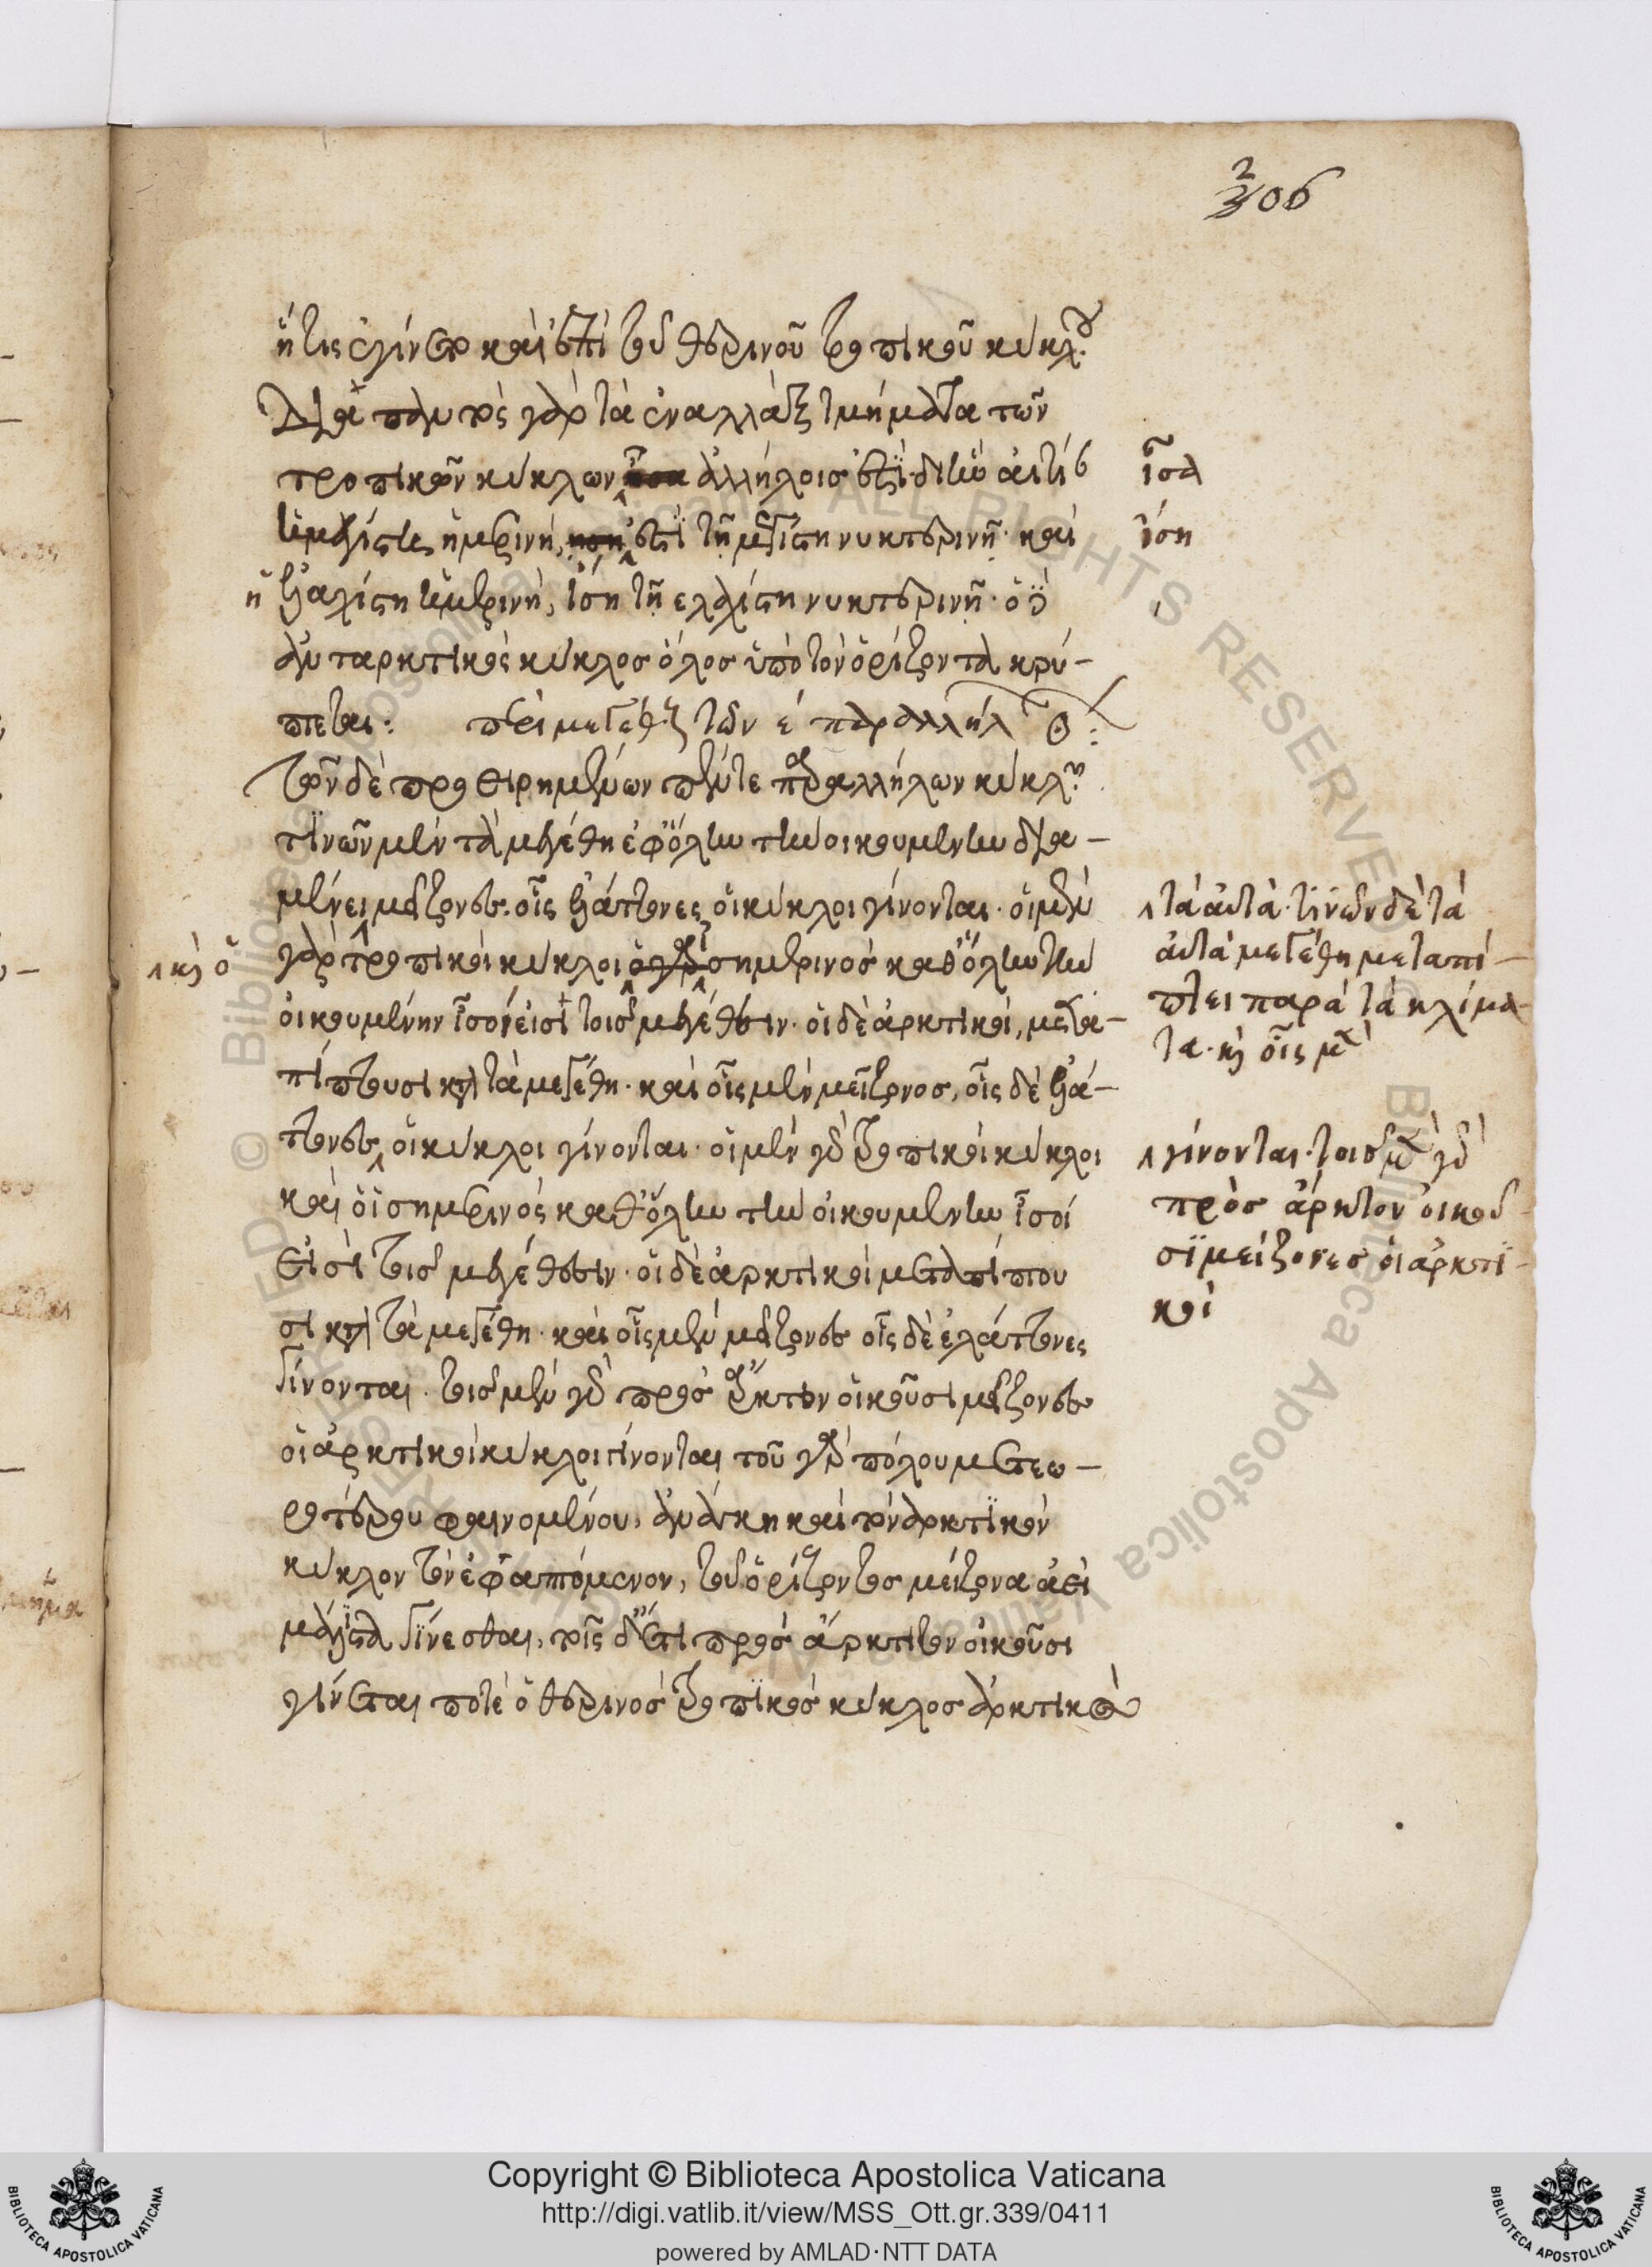 206
ἥτις ἐγίνετο καὶ ἐπὶ τοῦ θερινοῦ τροπικοῦ κύκλου
Διὰ παντὸς γὰρ τὰ ἐναλλὰξ τμήματα τῶν
τροπικῶν κύκλων ἀλλήλοις ἐστί· δι' ἣν αἰτίαν
ἡ μεγίστη ἡμερινή, ἐστὶ τῇ μεγίστῃ νυκτερινῇ· καὶ
ἡ ἐλαχίστη ἡμερινή, ἴση τῇ ελαχίστη νυκτερινῇ· ὁ δὲ
ἀνταρκτικὸς κύκλος ὅλος ὑπὸ τὸν ὁρίζοντα κρύ-
πτεται: περὶ μεγέθους τῶν ε παραλλήλων:
Τῶν δὲ προειρημένων πέντε παραλλήλων κύκλων
τινῶν μὲν τὰ μεγέθη ἐφ' ὅλην τὴν οἰκουμένην δια-
μένει μείζονες. οἷς ἐλάττονες οἱ κύκλοι γίνονται· οἱ μὲν
γὰρ τροπικοὶ κύκλοι σημερινὸς καθ' ὅλην τὴν
οἰκουμένην ἴσοι εἰσὶ τοῖς μεγέθεσιν· οἱ δὲ ἀρκτικοὶ, μετα-
πίπτουσι κατὰ τὰ μεγέθη· καὶ οἷς μὲν μείζονος, οἷς δὲ ἐλά-
ττονες, οἱ κύκλοι γίνονται· οἱ μὲν γὰρ τροπικοὶ κύκλοι
καὶ ὁ ἰσημερινὸς καθ' ὅλην τὴν οἰκουμένην ἴσοί
εἰσὶ τοῖς μεγέθεσιν· οἱ δὲ ἀρκτικοὶ μεταπίπτου
σι κατὰ τὰ μεγέθη· καὶ οἷς μὲν μείζονες οἷς δὲ ἐλάττονες
γίνονται. τοῖς μὲν γὰρ πρὸς ἄρκτον οἰκοῦσι μείζονες
οἱ ἀρκτικοὶ κύκλοι γίνονται τοῦ γὰρ πόλου μετεω-
ροτέρου φαινομένου, ἀνάγκη καὶ τὸν ἀρκτικὸν
κύκλον τὸν ἐφαπτόμενον, τοῦ ὁρίζοντος μείζονα ἀεὶ
μάλιστα γίνεσθαι, τοῖς δ' ἔτι πρὸς ἄρκτον οἰκοῦσι
γίνεται ποτὲ ὁ θερινὸς τροπικὸς κύκλος ἀρκτικὸς
ἴσα
ἴση
καὶ ὁ
τὰ αὐτὰ· τινῶν δὲ τὰ
αὐτὰ μεγέθη μεταπί-
πτει παρὰ τὰ κλίμα-
τα· καὶ οἷς μὲν
γίνονται· τοῖς μὲν γὰρ
πρὸς ἄρκτον οἰκοῦ-
σι μείζονες οἱ ἀρκτι-
κοὶ
Copyright © Biblioteca Apostolica Vaticana
http://digi.vatlib.it/view/MSS_Ott.gr.339/0411
powered by AMLAD·NTT DATA
BIBLIOTECA APOSTOLICA VATICANA
BIBLIOTECA APOSTOLICA VATICANA